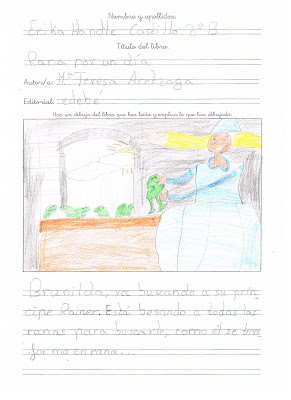 Nombre y apellidos:
Erika Handle Castillo 2º B
Título del libro:
Rana por un día
Autor/a: Mª Teresa Aretzaga
Editorial: edebé
Haz un dibujo del libro que has leído y explica lo que has dibujado.
Brunilda, va buscando a su prín-
cipe Rainer. Está besando a todas las
ranas para buscarle, como él se trans-
formó en rana...